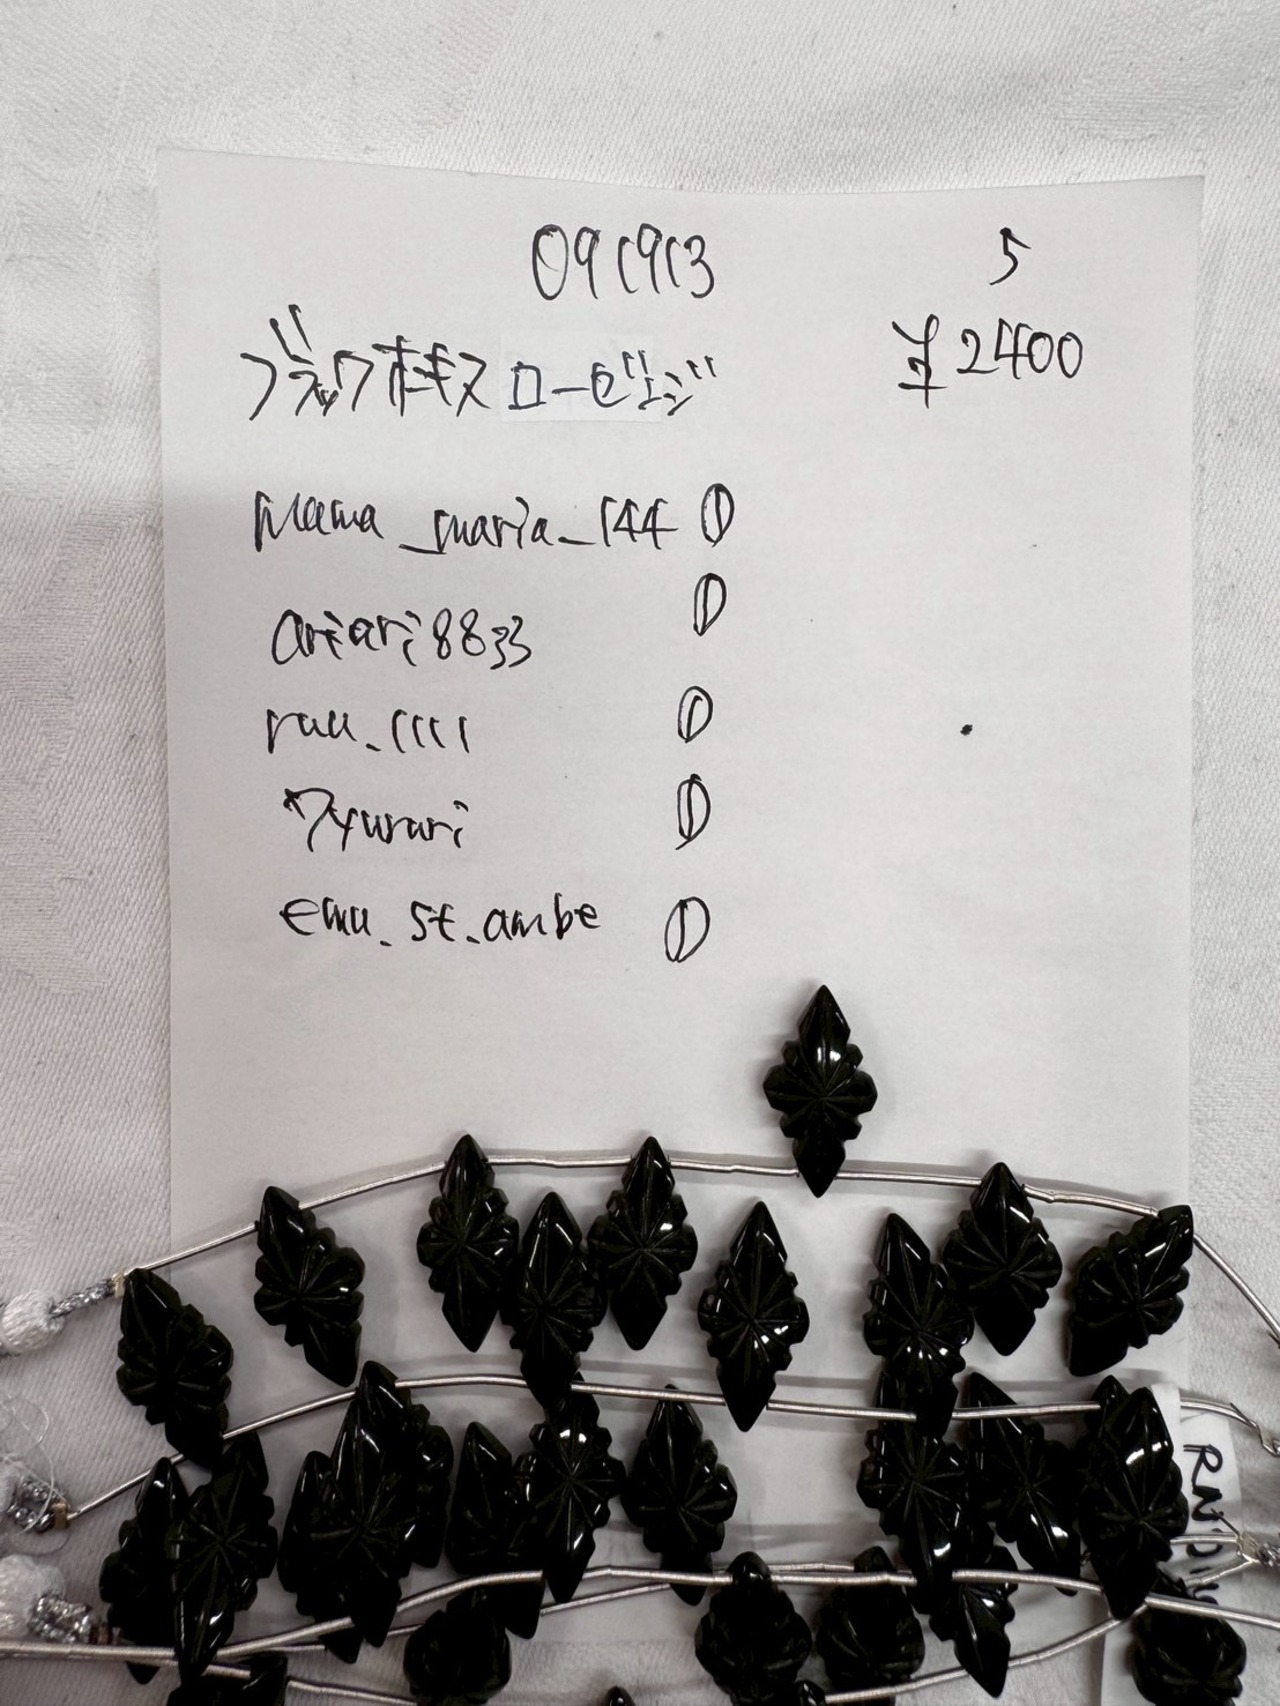 091913 5
ブラックオニキス ローゼビジ ¥2400
mama_maria_144 ①
ariari8833 ①
rau_1111 ①
emu_st_ambe ①